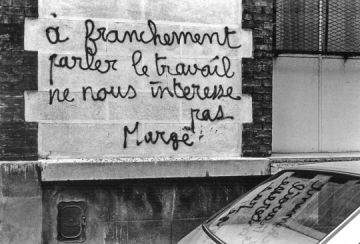 à franchement
parler le travail
ne nous interesse
pas
Margé